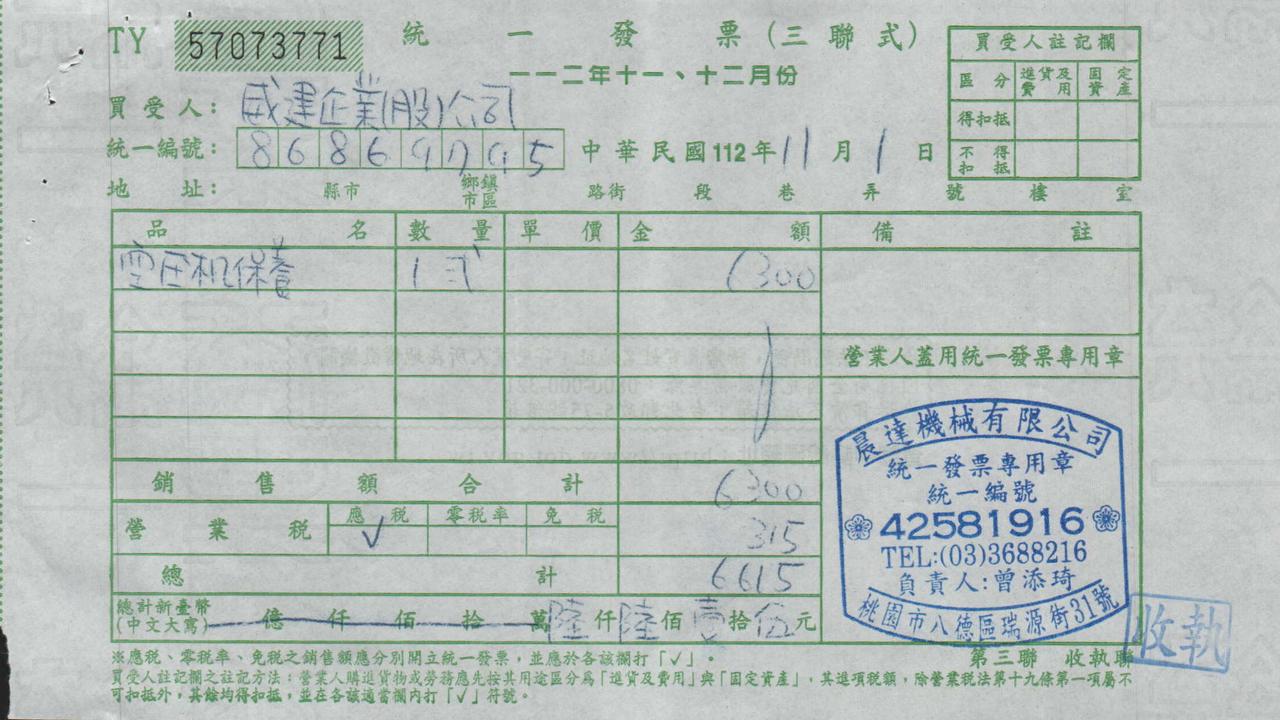 TY 57073771 統一發票(三聯式)
一一二年十一、十二月份
買受人註記欄
區分 進貨及費用 固定資產
得扣抵
不得扣抵
買受人: 威建企業(股)公司
統一編號: 8686 中華民國112年11月1日
地址: 縣市 鄉鎮市區 路街 段 巷 弄 號 樓 室
品名 數量 單價 金額 備註
空圧机保養 1式 6300
營業人蓋用統一發票專用章
銷售額合計 6300
營業稅 應稅 ✓ 零稅率 免稅 315
總計 6615
總計新臺幣(中文大寫) 億仟佰拾萬陸仟陸佰壹拾伍元
晨達機械有限公司
統一發票專用章
統一編號
42581916
TEL:(03)3688216
負責人:曾添琦
桃園市八德區瑞源街31號
收執
第三聯 收執聯
※應稅、零稅率、免稅之銷售額應分別開立統一發票,並應於各該欄打「✓」。
買受人註記欄之註記方法:營業人購進貨物或勞務應先按其用途區分為「進貨及費用」與「固定資產」,其進項稅額,除營業稅法第十九條第一項屬不
可扣抵外,其餘均得扣抵,並在各該適當欄內打「✓」符號。